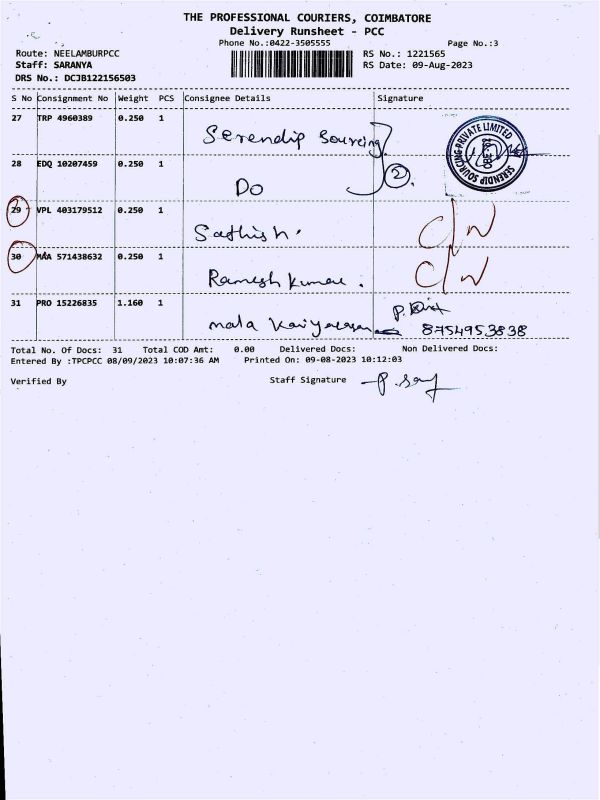 THE PROFESSIONAL COURIERS, COIMBATORE
Delivery Runsheet - PCC
Phone No.:0422-3505555 Page No.:3
Route: NEELAMBURPCC RS No.: 1221565
Staff: SARANYA RS Date: 09-Aug-2023
DRS No.: DCJB122156503
S No Consignment No Weight PCS Consignee Details Signature
27 TRP 4960389 0.250 1 Serendip Sourcing
SERENDIP SOURCING PRIVATE LIMITED
28 EDQ 10207459 0.250 1 Do 2.
29 VPL 403179512 0.250 1 Sathish. C/N
30 MAA 571438632 0.250 1 Ramesh Kumar. C/N
31 PRO 15226835 1.160 1 mala 8754953838
Total No. Of Docs: 31 Total COD Amt: 0.00 Delivered Docs: Non Delivered Docs:
Entered By :TPCPCC 08/09/2023 10:07:36 AM Printed On: 09-08-2023 10:12:03
Verified By Staff Signature